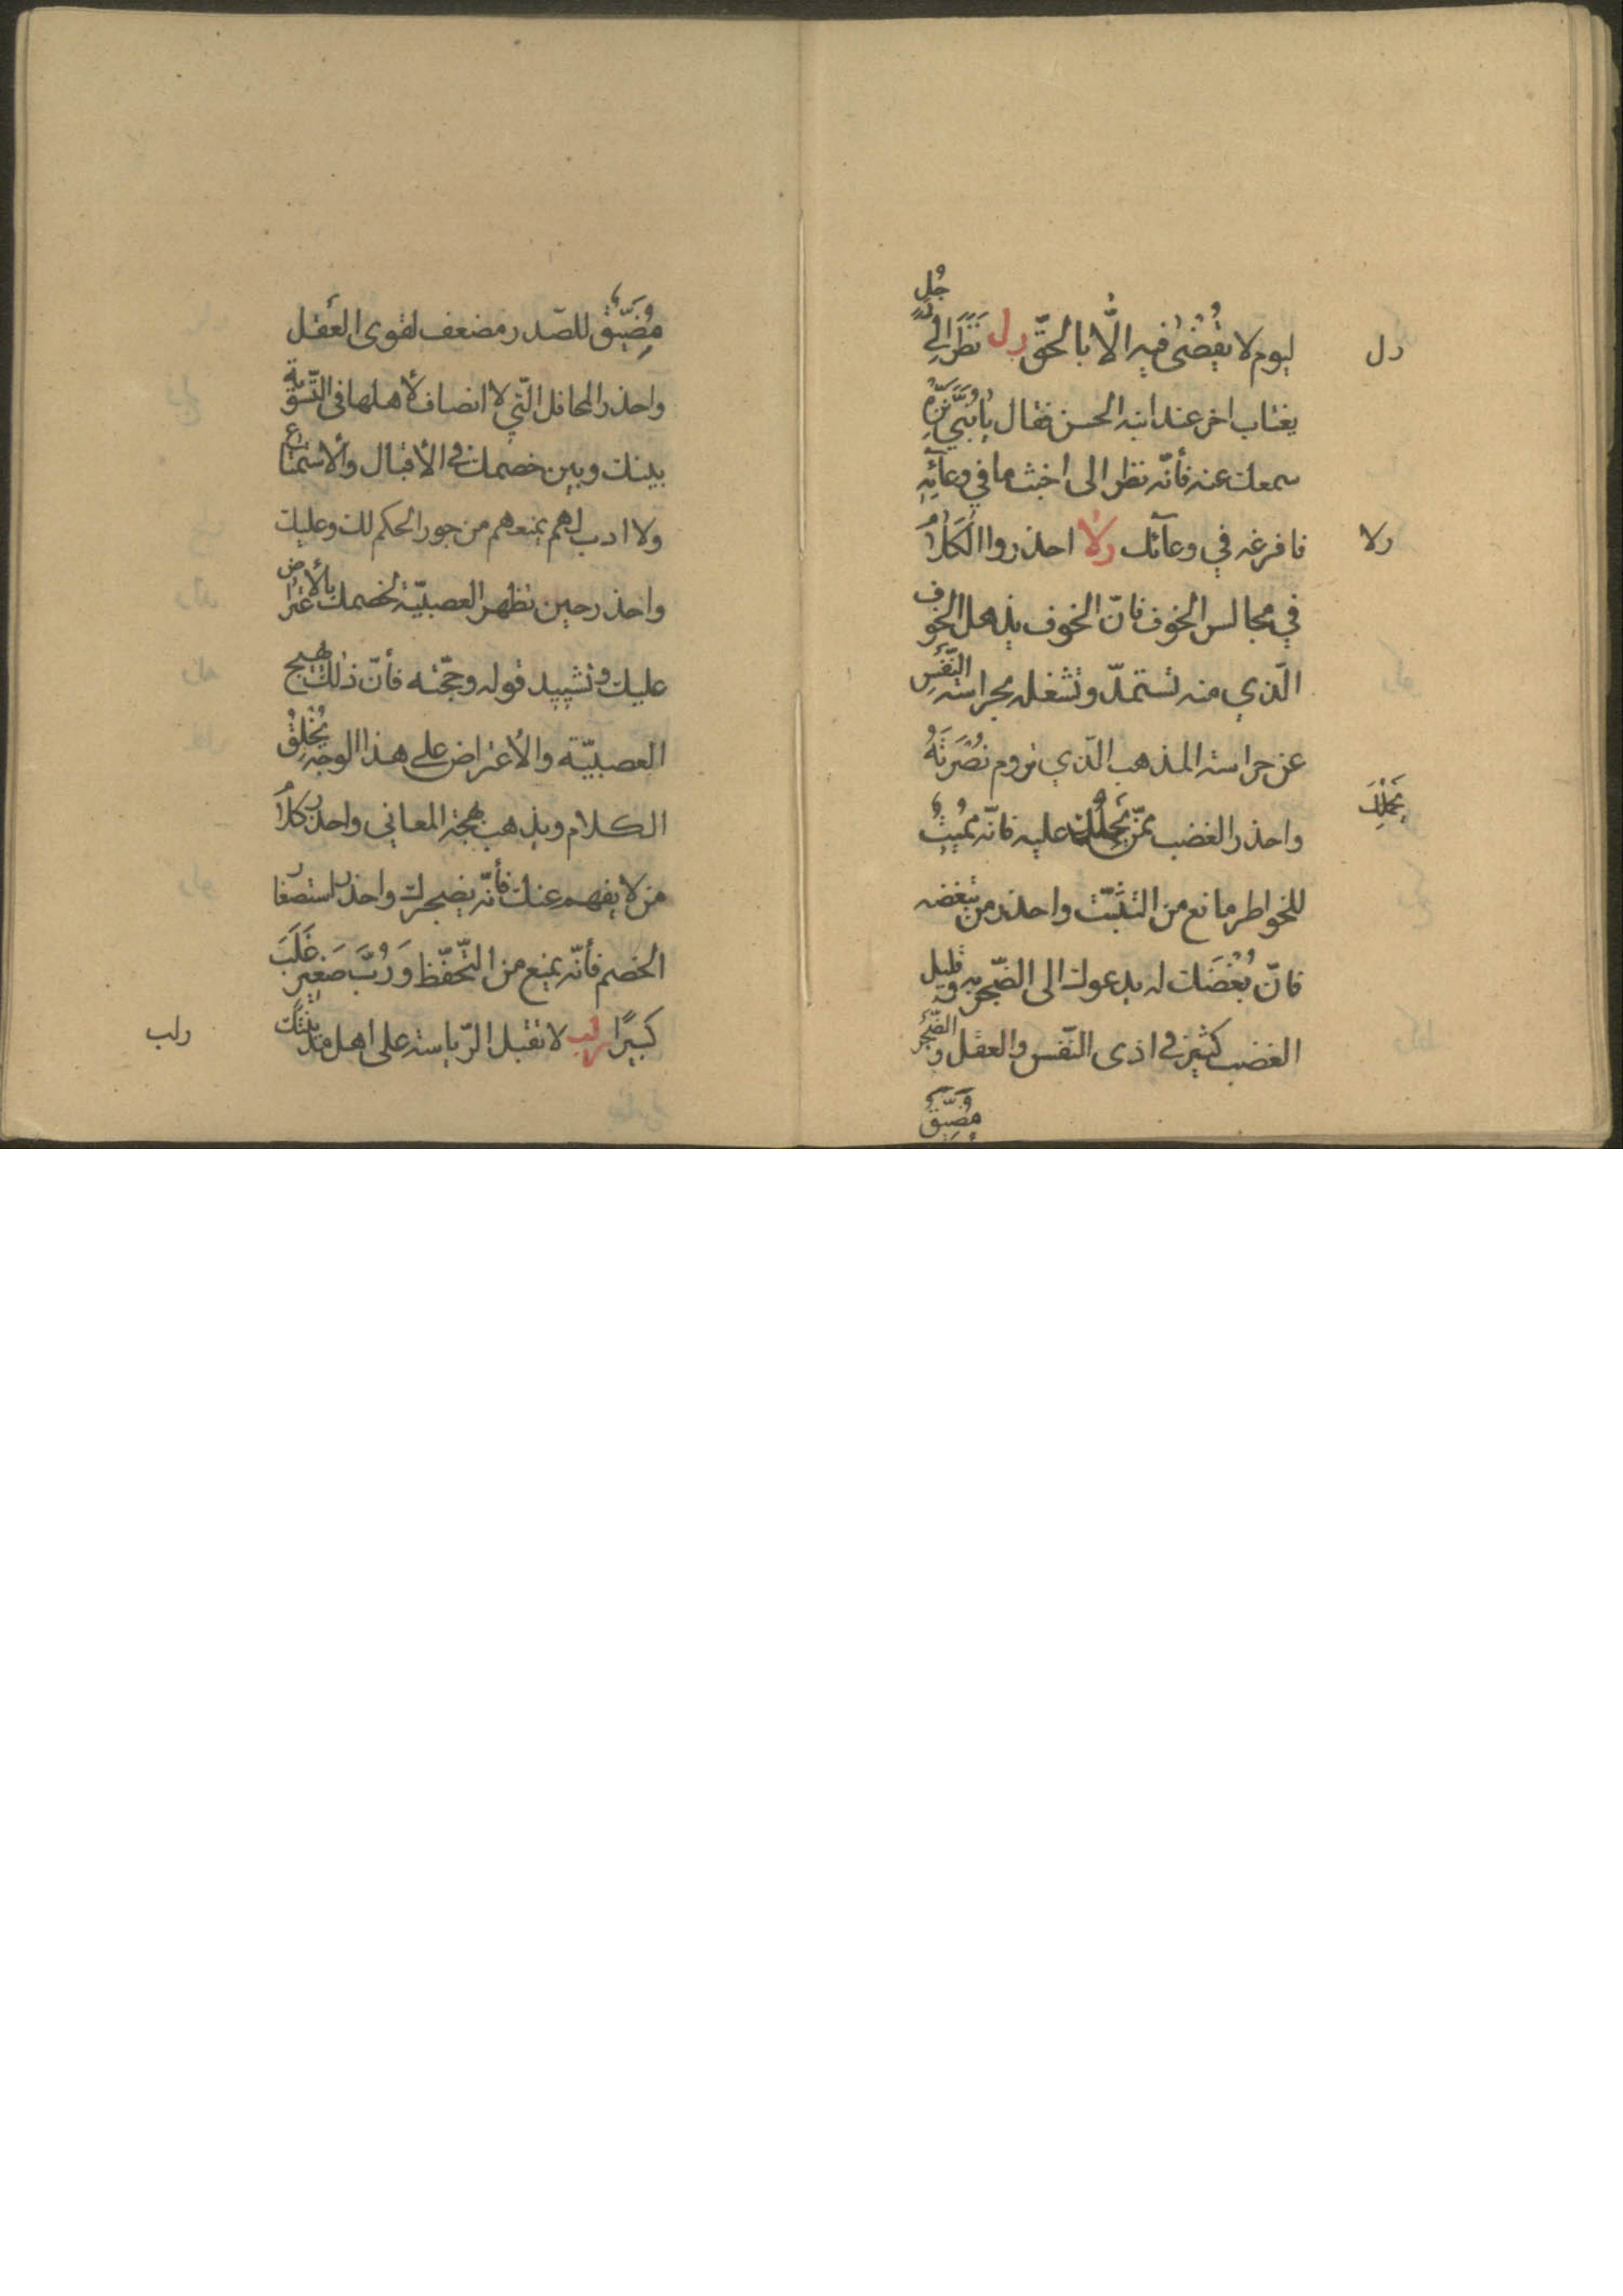 ليوم لا يُقْضىٰ فيه الّا بالحقّ رل نَظَرَ الىٰ رَجُلٍ
يغتاب اخر عند ابنه الحسن فقال يا بُنَيَّ نَزِّهْ
سمعك عنه فأنّه نظر الى اخبث ما في وعآئِهِ
فافرغه في وعآئك رلا احذروا الكَلامَ
في مجالس الخوف فانّ الخوف يذهل الخوف
الّذي منه تستمدّ وتشغله بحراسة النَّفْسِ
عن حراسة المذهب الّذي تروم نُصْرَتَهُ
واحذر الغضب ممّن يحملك عليه فانّه مُمِيتٌ
للخواطر مانع من التثبّت واحذر من تبغضه
فانّ بُغْضَك له يدعوك الى الضّجر به وقليل
الغضب كثير في اذى النّفس والعقل والضَّجَر
مُضَيِّقٌ
رل
رلا
يَحْمِلُكَ
مُضَيِّقٌ للصّدر مضعف لقوى العَقل
واحذر المحافل الّتي لا انصاف لأهلها في التّسوية
بينك وبين خصمك في الأقبال والأستماع
ولا ادب لهم يمنعهم من جور الحكم لك وعليك
واحذر حين تظهر العصبيّة لخصمك بالأعتراض
عليك وتشييد قوله وحجّته فأنّ ذلك يهيج
العصبيّة والأعتراض على هذا الوجه يُخْلِقُ
الكلام ويذهب بهجة المعاني واحذر كلامَ
من لا يفهم عنك فأنّه يضجرك واحذر استصغار
الخصم فأنّه يمنع من التّحفّظ وَرُبَّ صَغِيرٍ غَلَبَ
كَبيرًا رلب لا تقبل الرّياسة على اهل مدينتك
رلب